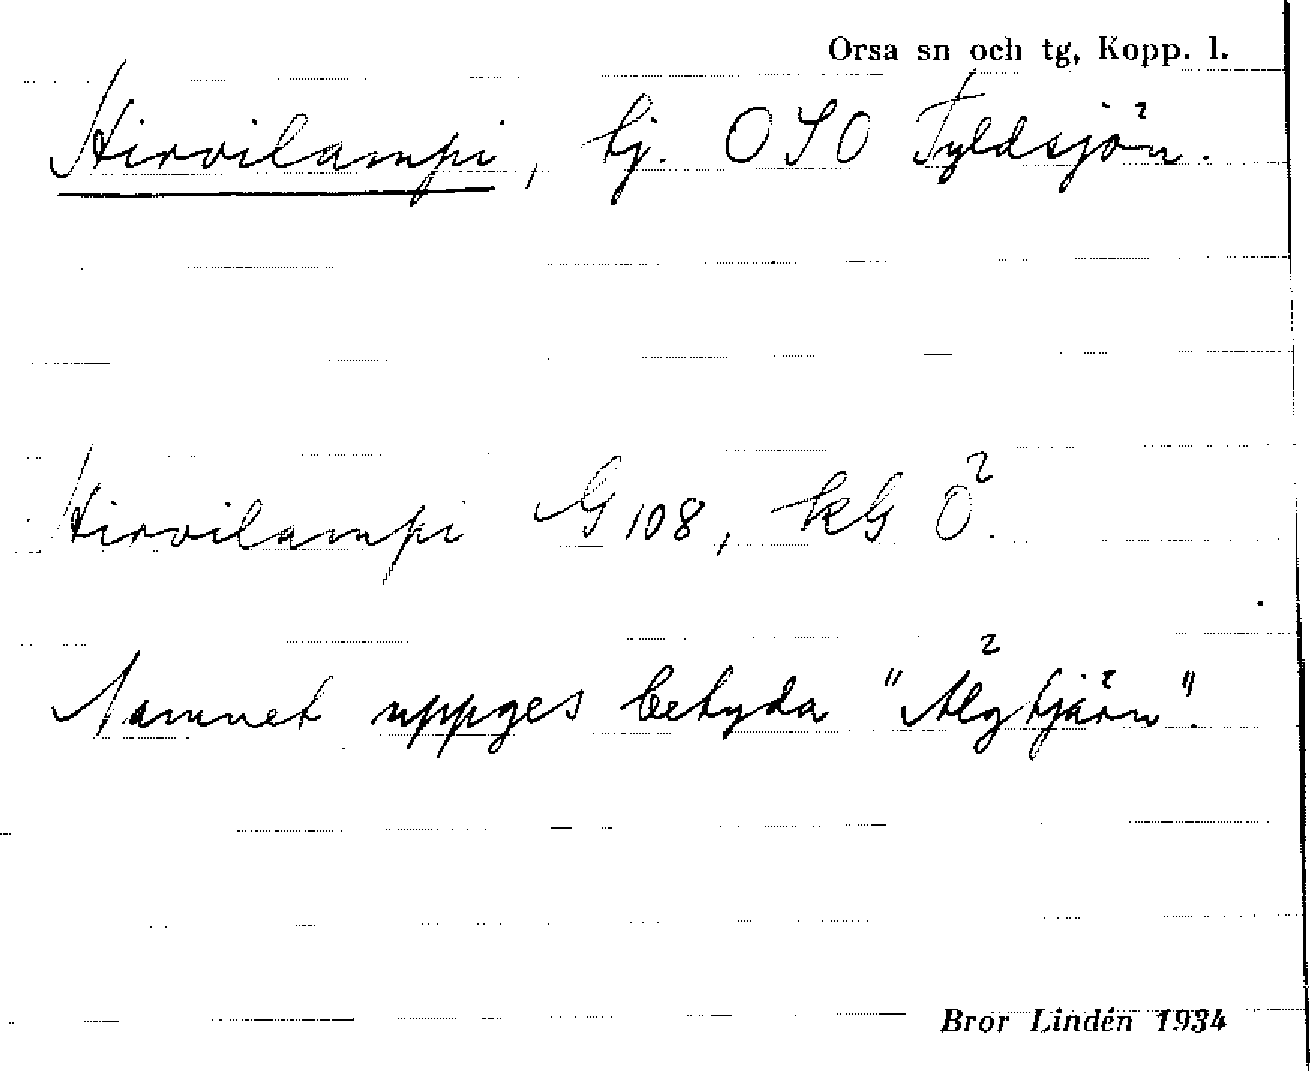 Orsa sn och tg, Kopp. l.
Hirvilampi, tj. OSO Fyldsjön.
Hirvilampi G 108, kG Ö.
Namnet uppges betyda "Älgtjärn".
Bror Lindén 1934